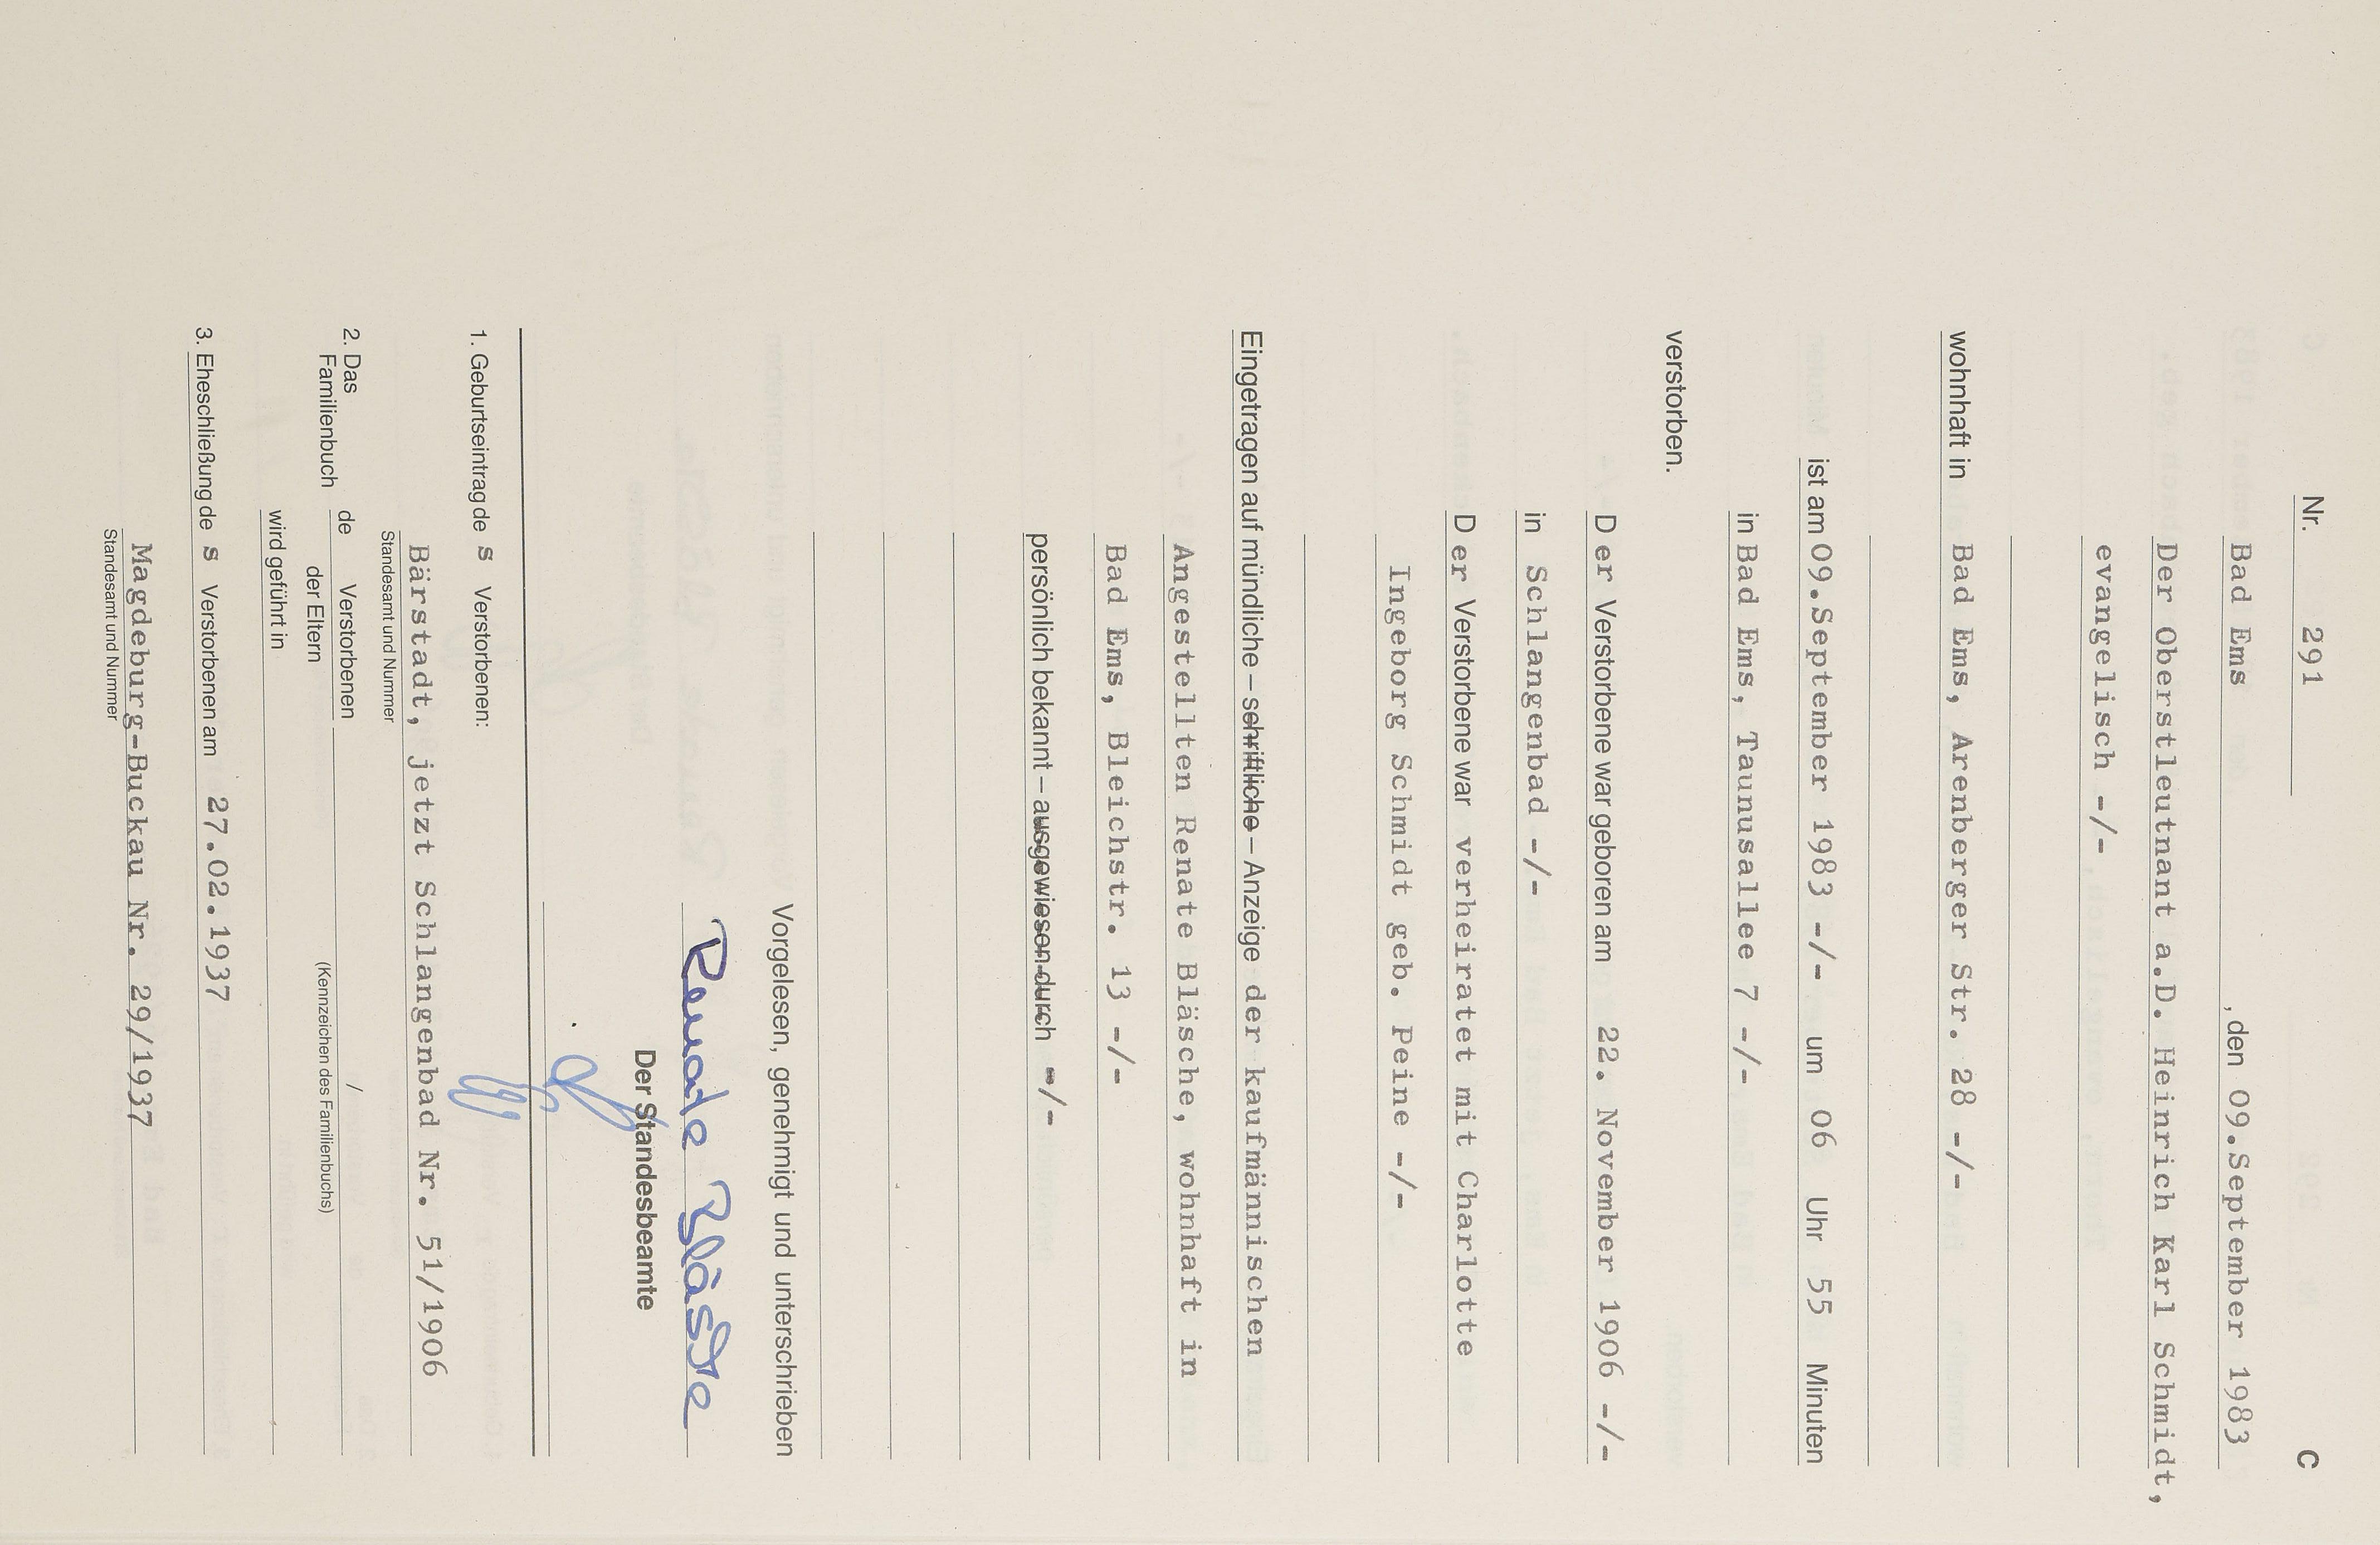 Nr. 291 C
Bad Ems , den 09.September 1983
Der Oberstleutnant a.D. Heinrich Karl Schmidt,
evangelisch -/-
wohnhaft in Bad Ems, Arenberger Str. 28 -/-
ist am 09.September 1983 -/- um 06 Uhr 55 Minuten
in Bad Ems, Taunusallee 7 -/-
verstorben.
D er Verstorbene war geboren am 22. November 1906 -/-
in Schlangenbad -/-
D er Verstorbene war verheiratet mit Charlotte
Ingeborg Schmidt geb. Peine -/-
Eingetragen auf mündliche – schriftliche – Anzeige der kaufmännischen
Angestellten Renate Bläsche, wohnhaft in
Bad Ems, Bleichstr. 13 -/-
persönlich bekannt – ausgewiesen durch -/-
Vorgelesen, genehmigt und unterschrieben
Renate Bläsche
Der Standesbeamte
1. Geburtseintrag de s Verstorbenen:
Bärstadt, jetzt Schlangenbad Nr. 51/1906
Standesamt und Nummer
2. Das Familienbuch de Verstorbenen /
der Eltern (Kennzeichen des Familienbuchs)
wird geführt in
3. Eheschließung de s Verstorbenen am 27.02.1937
Magdeburg-Buckau Nr. 29/1937
Standesamt und Nummer